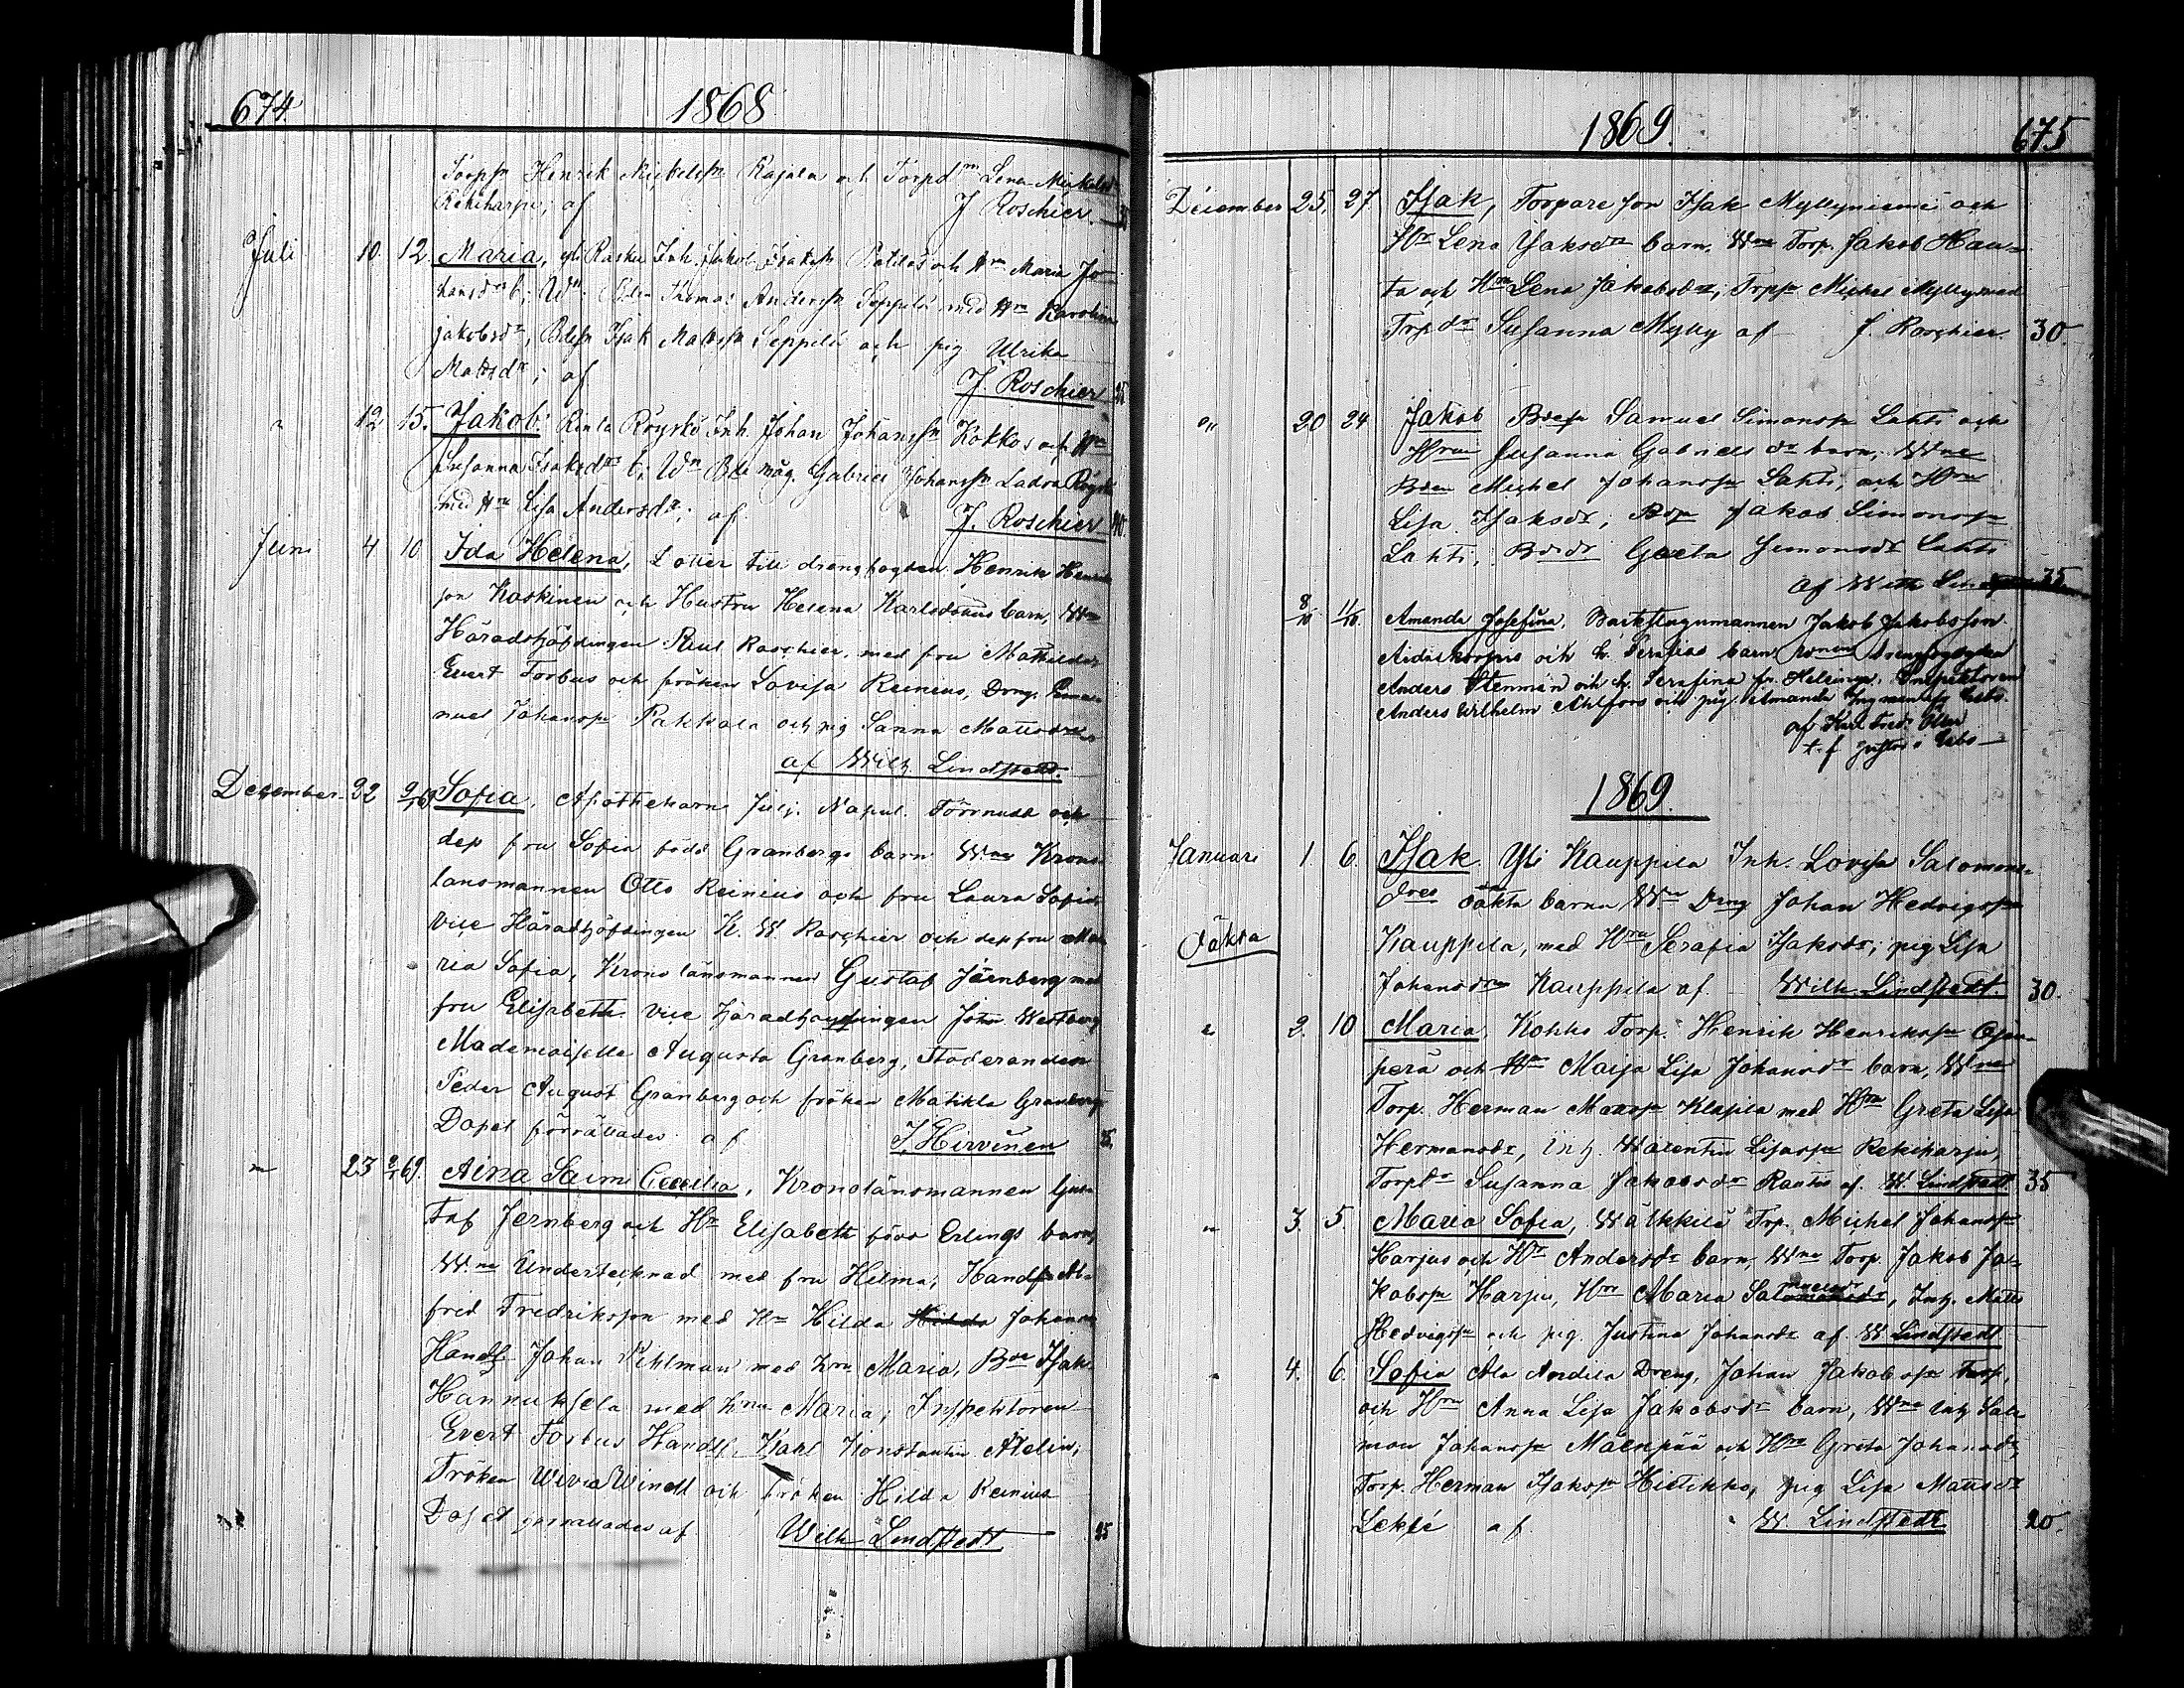 674 1868
Torpsn Henrik Michelssn Rajala och Torpdrn Lena Michelsdr
Rekiharju; af J Roschier. 35
Juli 10. 12. Maria, Yli Rasku Inh. Jakob Isakssn och Hru Maria Jo-
hansdrs b; Wn: Thomas Anderssn Seppilä med Hru Karolina
Jakobsdr, Bdesn Isak Mattssn Seppilä och pig Ulrika
Mattsdr; af J. Roschier 35
" 12 15. Jakob: Rinta Röyskö Inh. Johan Johanssn Kokkos och Hru
Susanna Isaksdrs b; Wn Bde måg. Gabriel Johanssn Ladva Röyskö
med Hru Lisa Andersdr; af J. Roschier 40.
Juni 4 10 Ida Helena, Dotter till drengfogden Henrik Henriks
son Koskinen och Hustru Helena Karlsdotters barn, Wne
Häradshöfdingen Roschier, med fru Mathilda
Evert Forbus och fröken Lovisa Reinius, Dreng. Ema-
nuel Johanssn Pakkala och pig Sanna Mattsdr
af Wilh. Lindstedt.
December 22 9/1 69 Sofia, Apothekarn Julj. Napol. Törnudd och
dess fru Sofia född Granbergs barn W.ne Krono-
lansmannen Otto Reinius och fru Laura Sofia,
Vice Häradshöfdingen K. W. Roschier och dess fru Ma-
ria Sofia, Krono länsmannen Gustaf Järnberg med
fru Elisabeth Vice häradshöfdingen John Westberg
Mademoiselle Augusta Granberg, Studeranden
Peder August Granberg och fröken Matilda Granberg
Dopet förrättades af J. Hirvinen 35.
" 23 9/1 69. Aina Saimi Cecilia, Kronolänsmannen Gus-
taf Jernberg och Hr Elisabeth född Erlings barn,
W.ne Undertecknad med fru Hilma; Handl. Al-
fred Fredriksson med Hru Hilda Hilda Johans
Handl Johan Kihlman med hru Maria, Bde Isak
Hannuksela med hru Maria; Inspektoren
Evert Forbus Handl. Karl Konstantin Ahlin,
Fröken Wivia Windt och fröken Hilda Reinius
Dopet förrättades af Wilh Lindstedt 25
1869. 675
December 25. 27. Isak, Torpare son Isak Myllyniemi och
Hr Lena Isaksdrs barn. Wne Torp. Jakob Hau-
ta och Hru Lena Jakobsdr; Torpsn Michel Mylly med
Torpdr Susanna Mylly af J. Roschier. 30.
" 20 24 Jakob Bdesn Samuel Simonssn Lahti och
Hru Susanna Gabrielsdrs barn, Wne
Bden Michel Johanssn Lahti, och Hru
Lisa Isaksdr; Bdsn Jakob Simonssn
Lahti, Bdedr Greta Simonsdr Lahti
af Wilh Lindstedt 35
8/10 11/10. Amanda Josefina, Jakob Jakobsson
och h. Serafias barn
Anders Stenman och h. Serafina fr. Helsinge, Inspektoren
Anders Wilhelm Ahlfors och pig. Amanda
af Karl Fred.
1869.
Januari 1. 6. Isak Yli Kauppila Inh. Lovisa Salomons-
dres oäkta barn Wne Dreng Johan Hedvigssn
Oäkta Kauppila, med Hru Serafia Isaksdr; pig Lisa
Johansdr Kauppila af Wilh. Lindstedt. 30.
" 2. 10 Maria, Kohks Torp. Henrik Henrikssn Ojan-
perä och Hru Maija Lisa Johansdrs barn, Wne
Torp. Herman Mattssn Klapila med Hru Greta Lisa
Hermansdr, Inh. Walentin Lisassn Rekiharju,
Torpdr Susanna Jakobsdr Rantus af. W. Lindstedt 35
" 3. 5. Maria Sofia, Wälkkilä Trp. Michel Johanssn
Harjus och Hr Andersdrs barn, Wne Torp. Jakob Ja-
kobssn Harju, Hru Maria Salomonsdr muelsdr, Inh. Matts
Hedvigssn och pig Justina Johansdr af W Lindstedt
" 4. 6. Sofia Ala Andila Dreng, Johan Jakobssn Torp,
och Hru Anna Lisa Jakobsdrs barn, Wne Inh Salo-
mon Johanssn Mäenpää och Hru Greta Johansdr,
Torp. Herman Isakssn Hietikko, pig Lisa Mattsdr
af W Lindstedt 20.